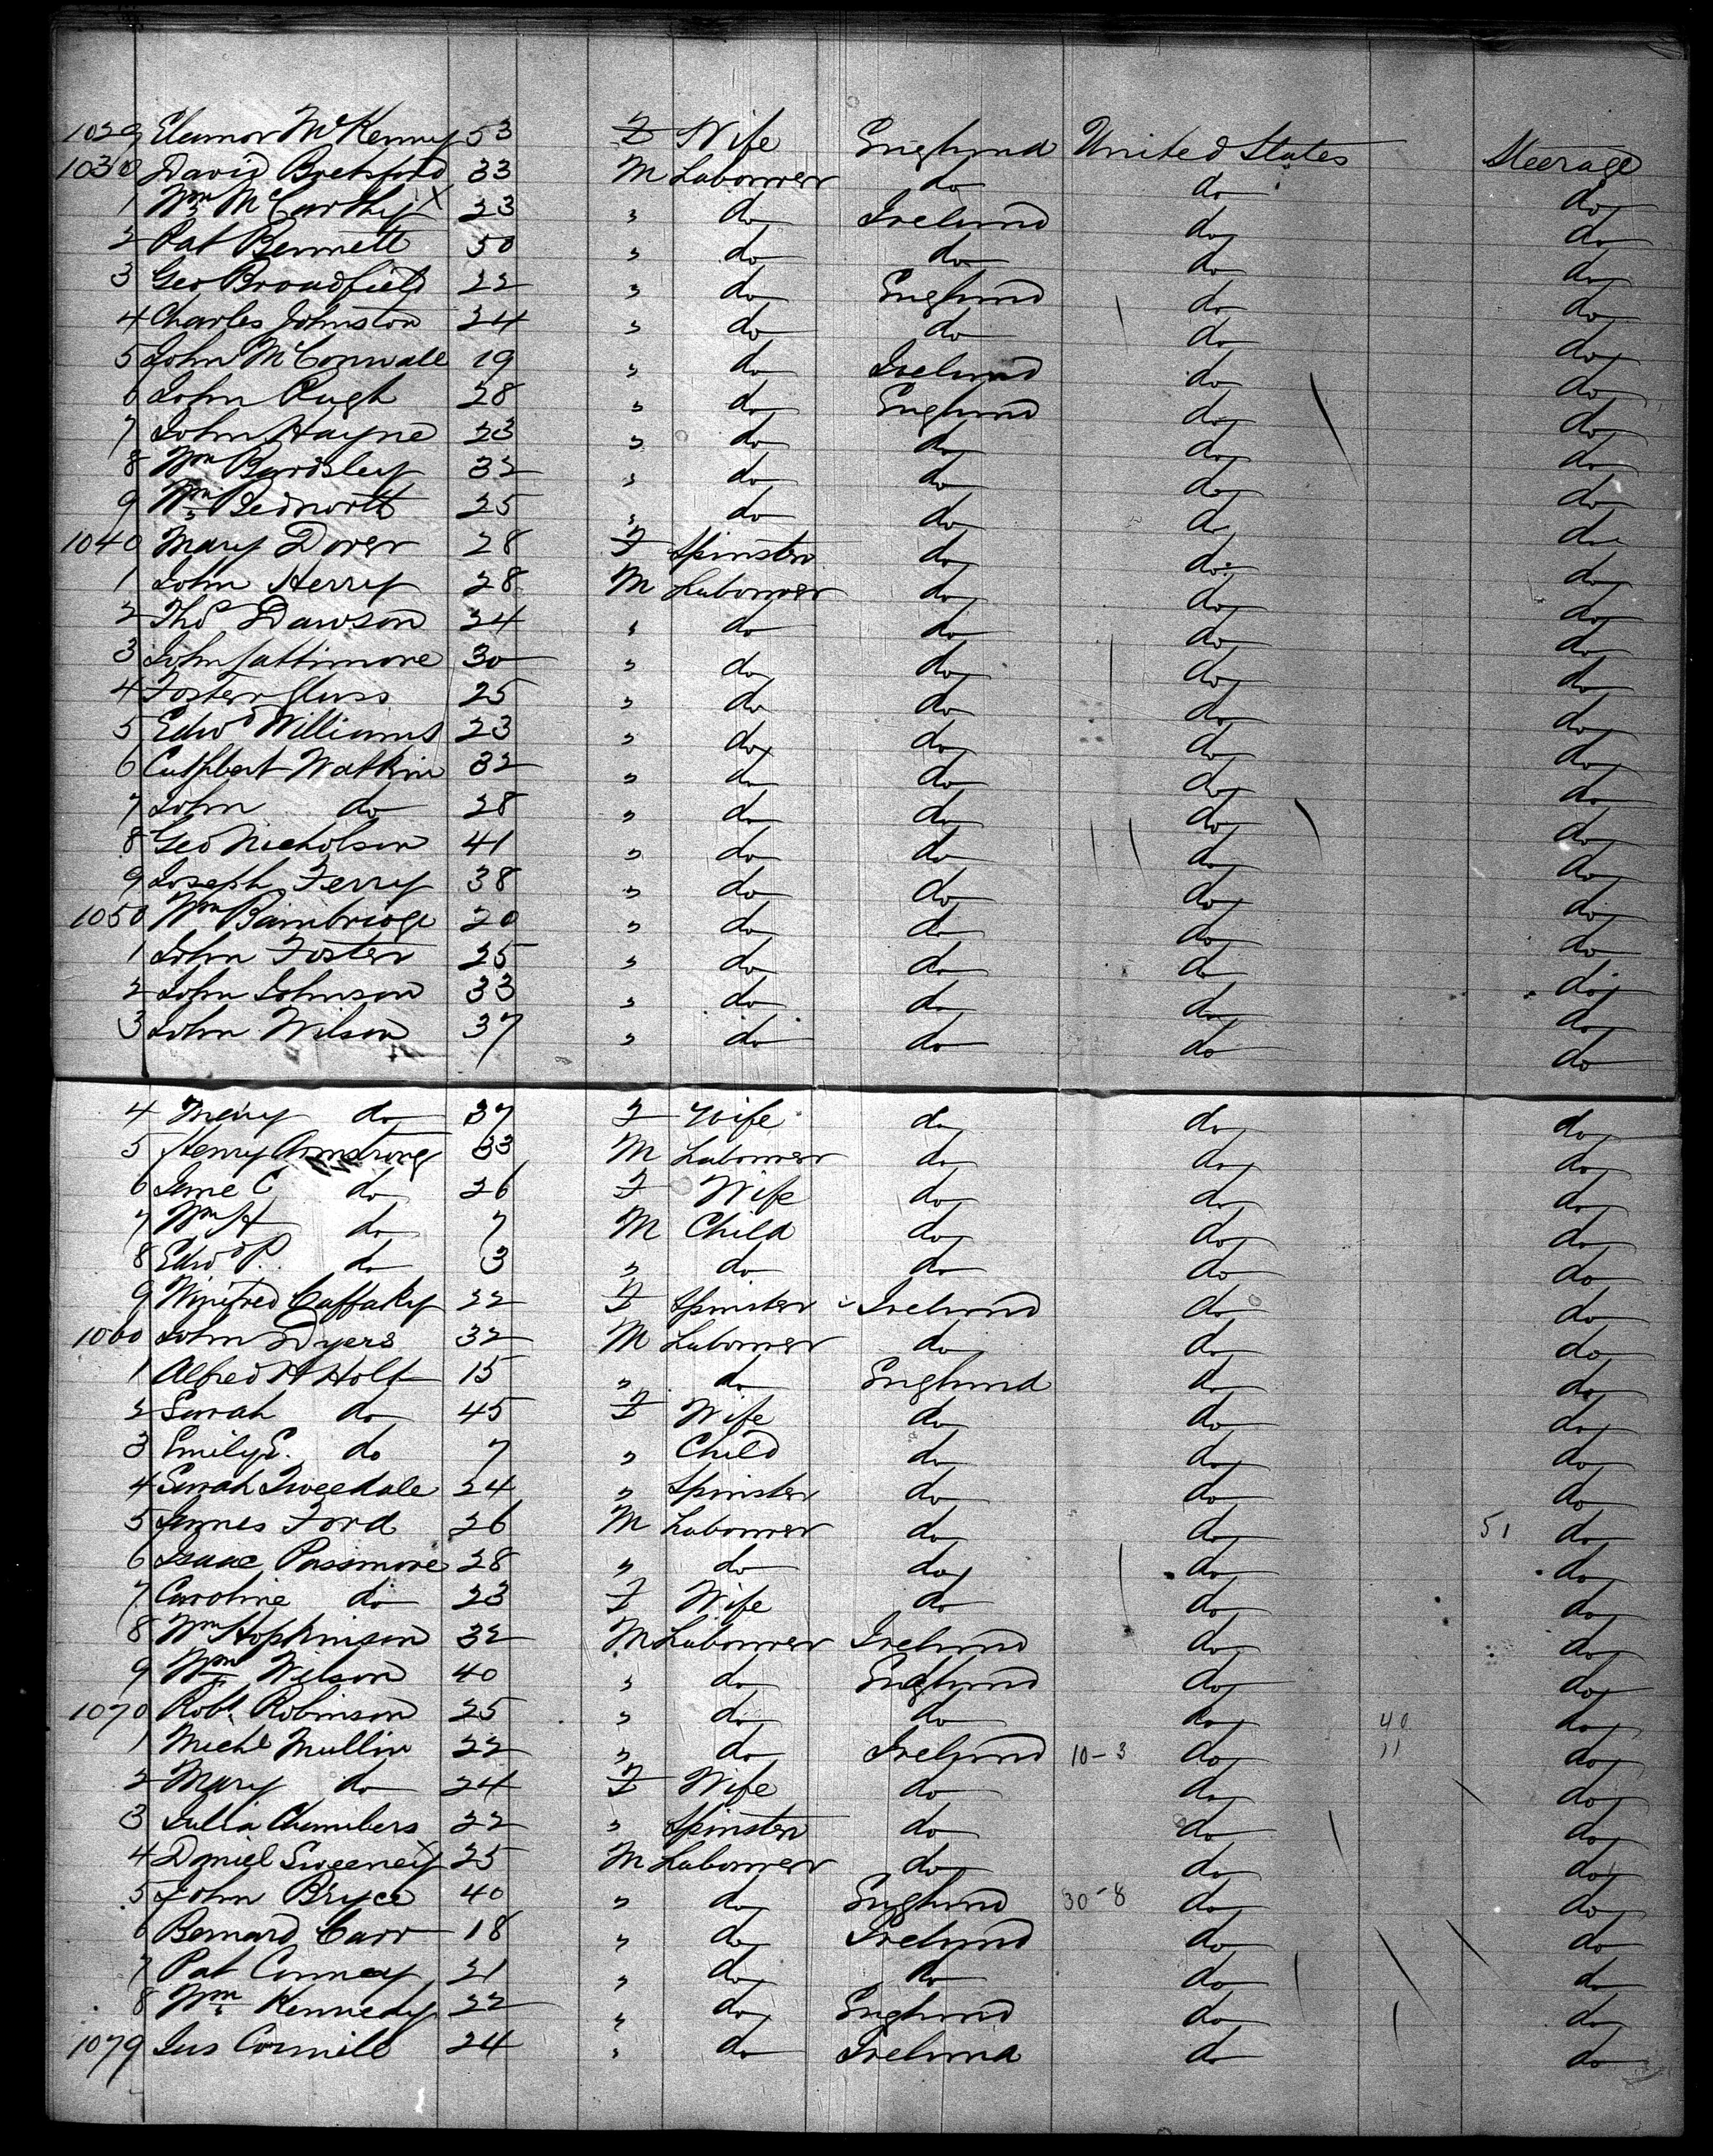 1029 Eleanor McKenny 53 F Wife England United States Steerage
1030 David Botsford 33 M Labourer do do do
1 Wm McCarthy X 23 " do Ireland do do
2 Pat Bennett 50 " do do do do
3 Geo Broadfield 22 " do England do do
4 Charles Johnston 24 " do do do do
5 John McConwall 19 " do Ireland do do
6 John Pugh 28 " do England do do
7 John Hayne 23 " do do do do
8 Wm Bardsley 32 " do do do do
9 Wm Bednorth 25 " do do do do
1040 Mary Dover 28 F Spinster do do do
1 John Herry 28 M Labourer do do do
2 Thos Dawson 24 " do do do do
3 John Lattimore 30 " do do do do
4 Foster Glass 25 " do do do do
5 Edwd Williams 23 " do do do do
6 Cuthbert Watkin 32 " do do do do
7 John do 28 " do do do do
8 Geo Nicholson 41 " do do do do
9 Joseph Ferry 38 " do do do do
1050 Wm Bambridge 20 " do do do do
1 John Foster 25 " do do do do
2 John Johnson 33 " do do do do
3 John Wilson 37 " do do do do
4 Mary do 37 F Wife do do do
5 Henry Armstrong 33 M Labourer do do do
6 Jane C do 26 F Wife do do do
7 Wm H do 7 M Child do do do
8 Edwd P. do 3 " do do do do
9 Winifred Caffaky 22 F Spinster Ireland do do
1060 John Dyers 32 M Labourer do do do
1 Alfred H Holt 15 " do England do do
2 Sarah do 45 F Wife do do do
3 Emily E. do 7 " Child do do do
4 Sarah Tweedale 24 " Spinster do do do
5 James Ford 26 M Labourer do do 51 do
6 Isaac Passmore 28 " do do do do
7 Caroline do 23 F Wife do do do
8 Wm Hopkinson 32 M Labourer Ireland do do
9 Wm Wilson 40 " do England do do
1070 Robt. Robinson 25 " do do do 40 do
1 Michl Mullin 22 " do Ireland 10-3 do 11 do
2 Mary do 24 F Wife do do do
3 Julia Chambers 22 " Spinster do do do
4 Daniel Sweeney X 25 M Labourer do do do
5 John Bryce 40 " do England 30-8 do do
6 Bernard Carr 18 " do Ireland do do
7 Pat Conney 21 " do do do do
8 Wm Kennedy 22 " do England do do
1079 Jas Cormill 24 " do Ireland do do